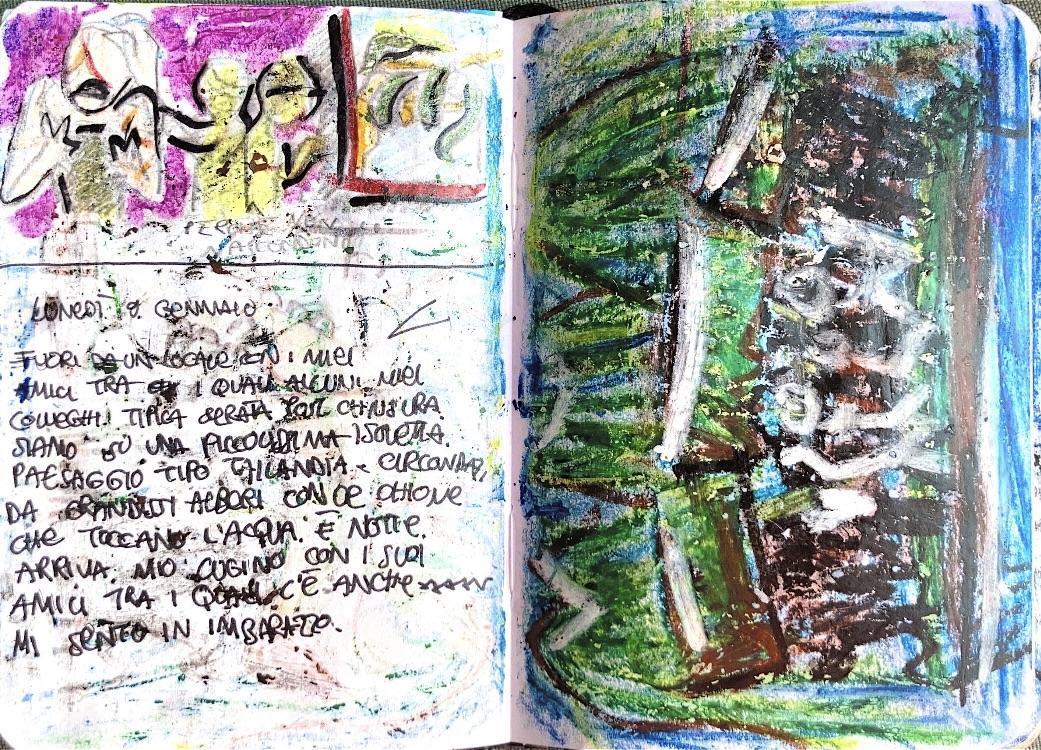 LUNEDÌ 8 GENNAIO
FUORI DA UN LOCALE CON I MIEI
AMICI TRA I QUALI ALCUNI MIEI
COLLEGHI. TIPICA SERATA POST CHIUSURA.
SIAMO SU UNA PICCOLISSIMA ISOLETTA.
PAESAGGIO TIPO TAILANDIA. CIRCONDATI
DA GRANDISSIMI ALBERI CON LE CHIOME
CHE TOCCANO L'ACQUA. È NOTTE.
ARRIVA MIO CUGINO CON I SUOI
AMICI TRA I QUALI C'È ANCHE
MI SENTO IN IMBARAZZO.